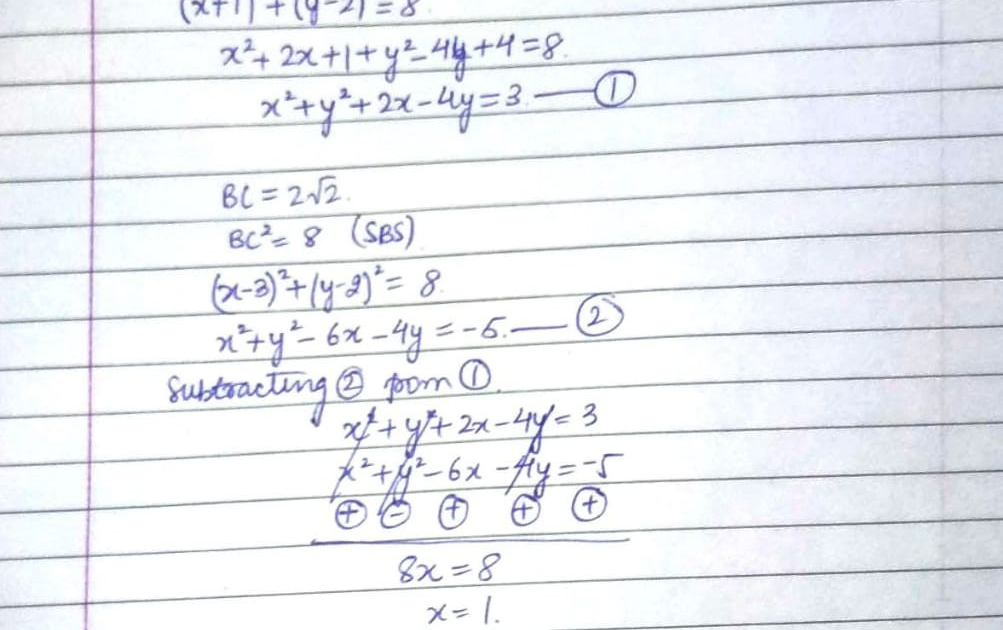 (x+1) + (y-2) = 8
x²+ 2x+1+y²-4y+4=8.
x²+y²+2x-4y=3. — ①
BC = 2√2.
BC²= 8 (SBS)
(x-3)²+(y-2)²= 8.
x²+y²- 6x-4y = -5. — ②
Subtracting ② from ①.
x²+y²+2x-4y=3
x²+y²-6x-4y=-5
⊕ ⊖ ⊕ ⊕ ⊕
8x=8
x=1.